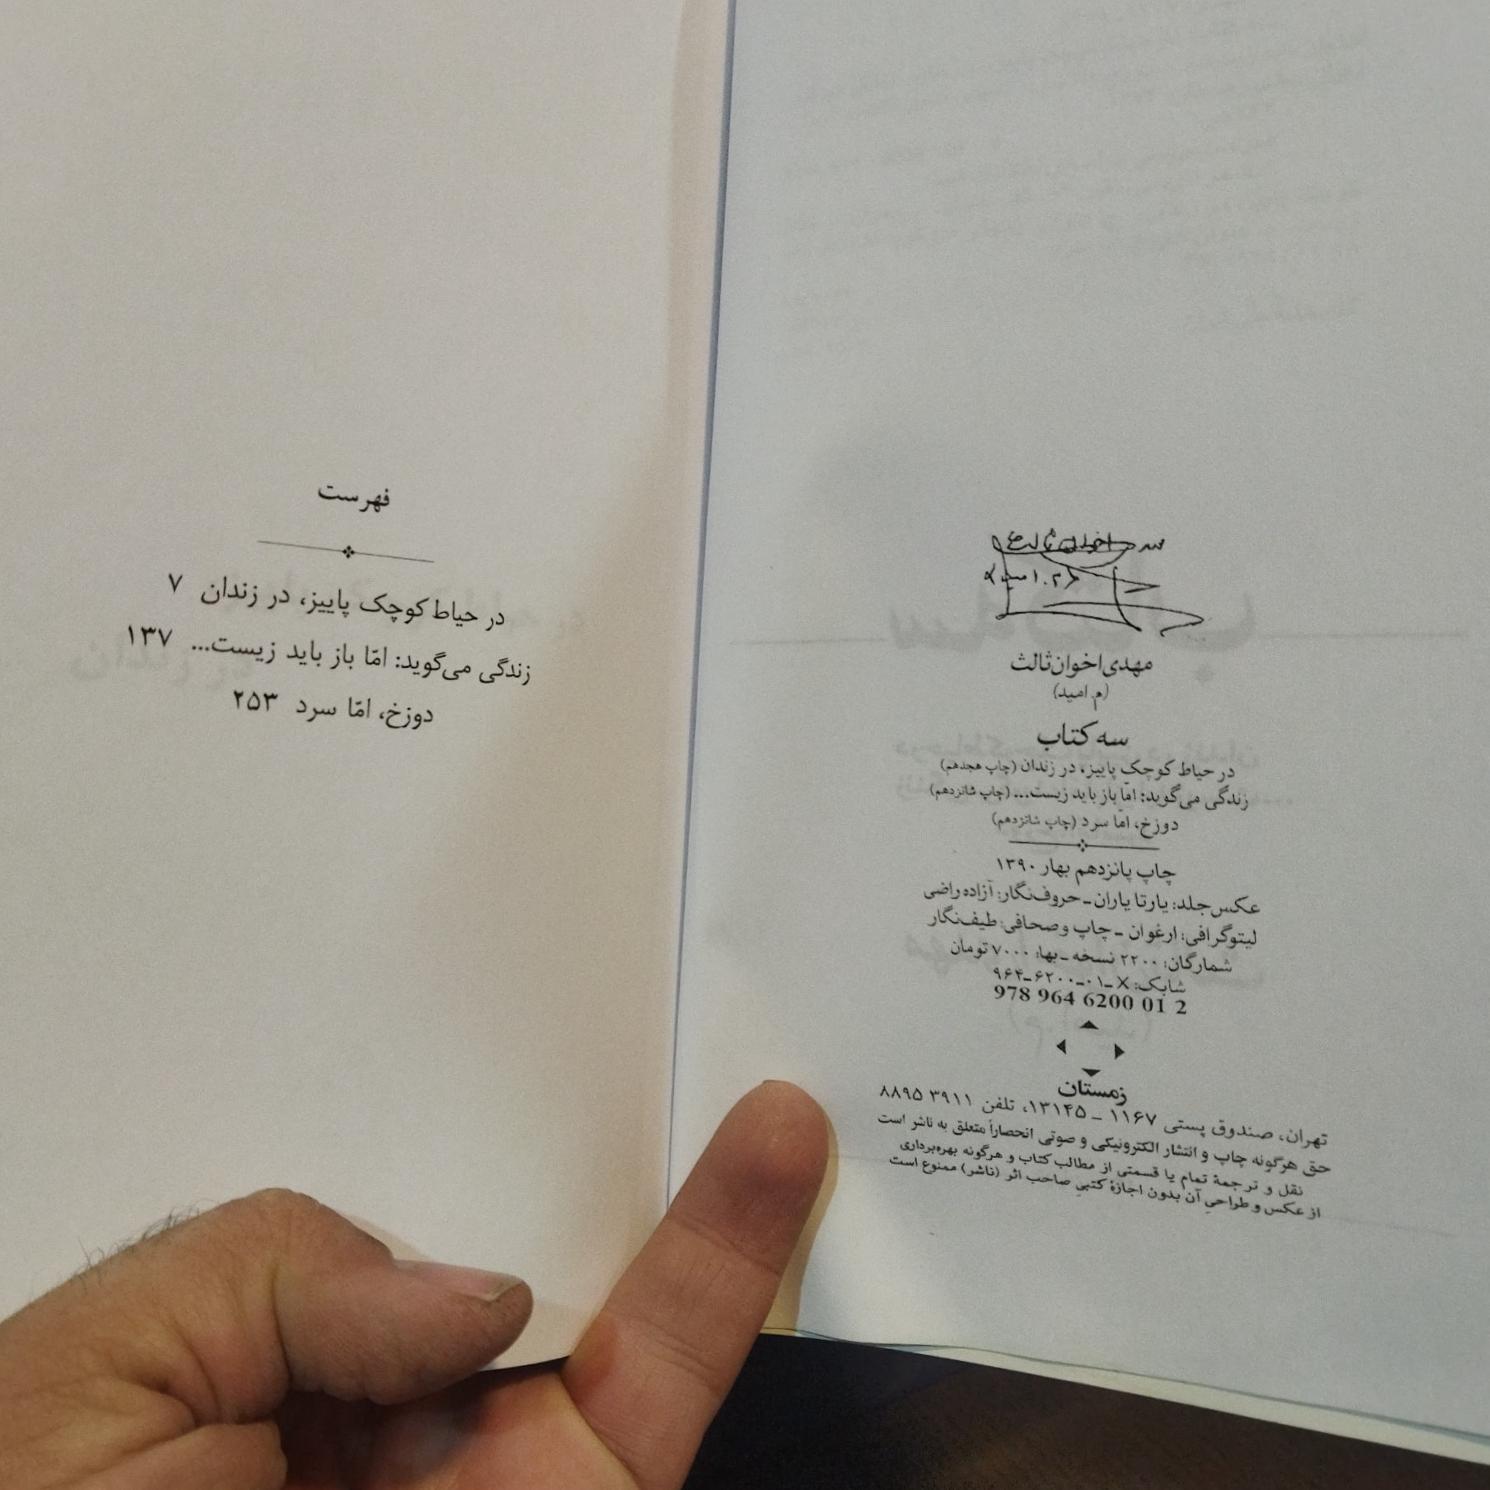 مهدی اخوان ثالث
(م. امید)
سه کتاب
در حیاط کوچک پاییز، در زندان (چاپ هجدهم)
زندگی می‌گوید: امّا باز باید زیست... (چاپ شانزدهم)
دوزخ، امّا سرد (چاپ شانزدهم)
چاپ پانزدهم بهار ۱۳۹۰
عکس جلد: یارتا یاران ـ حروف‌نگار: آزاده راضی
لیتوگرافی: ارغوان ـ چاپ و صحافی: طیف‌نگار
شمارگان: ۲۲۰۰ نسخه ـ بها: ۷۰۰۰ تومان
شابک: X ـ ۰۱ ـ ۶۲۰۰ ـ ۹۶۴
978 964 6200 01 2
زمستان
تهران، صندوق پستی ۱۱۶۷ ـ ۱۳۱۴۵، تلفن ۳۹۱۱ ۸۸۹۵
حق هرگونه چاپ و انتشار الکترونیکی و صوتی انحصاراً متعلق به ناشر است
نقل و ترجمهٔ تمام یا قسمتی از مطالب کتاب و هرگونه بهره‌برداری
از عکس و طراحیِ آن بدون اجازهٔ کتبیِ صاحب اثر (ناشر) ممنوع است
فهرست
در حیاط کوچک پاییز، در زندان ۷
زندگی می‌گوید: امّا باز باید زیست... ۱۳۷
دوزخ، امّا سرد ۲۵۳